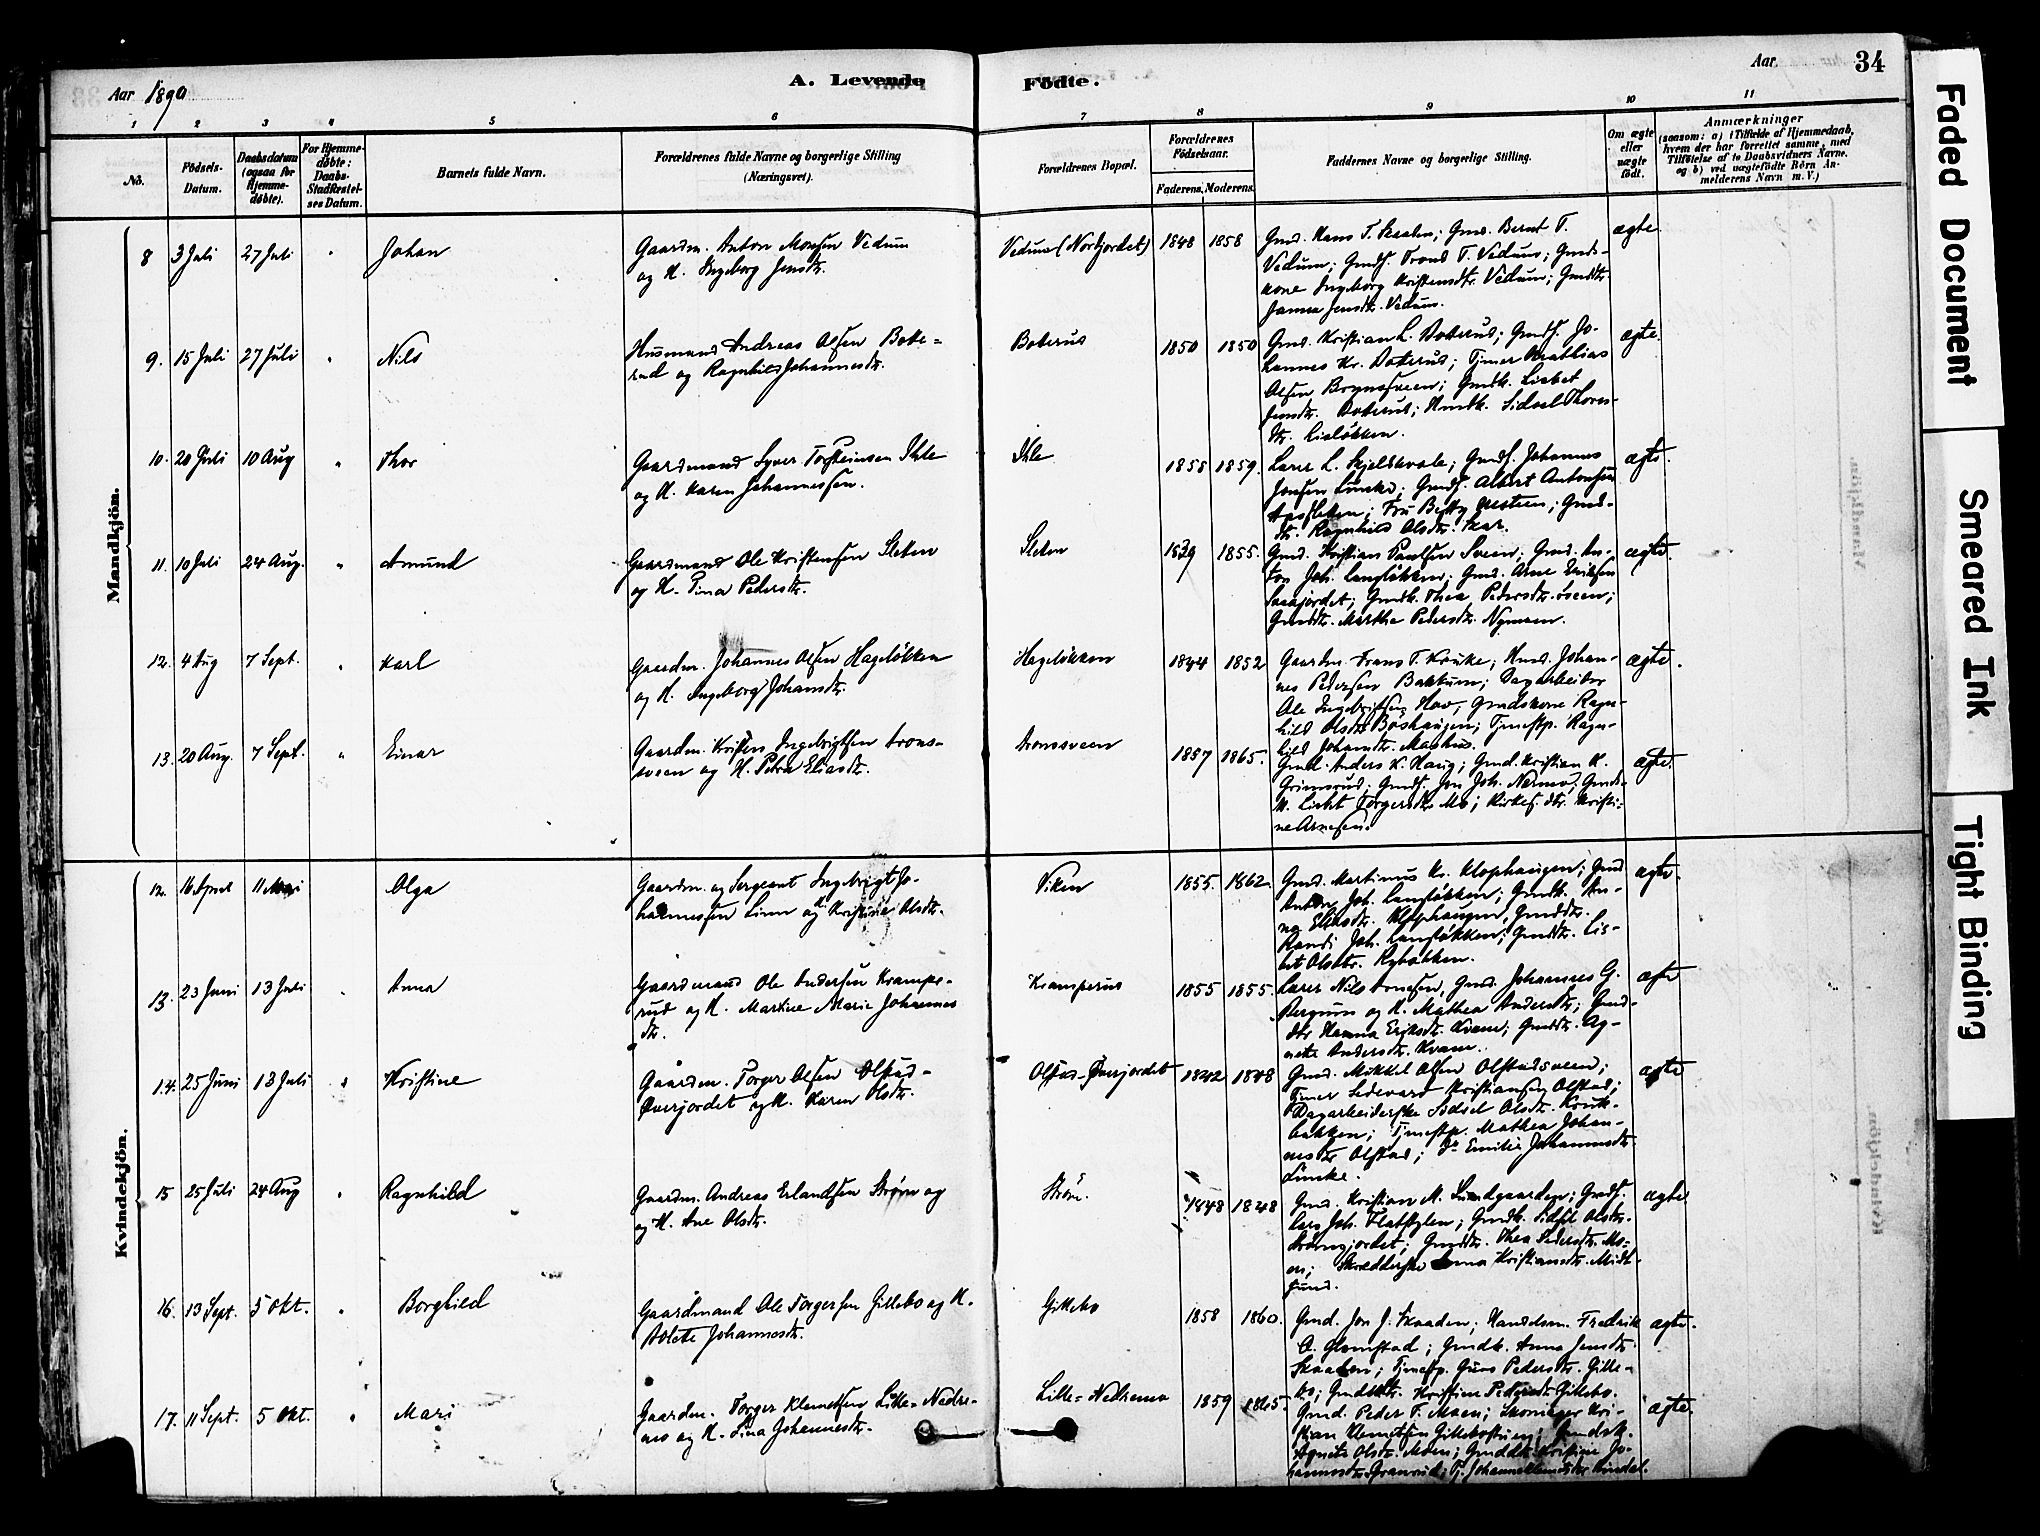 Aar 1890
A. Levende Födte.
Aar
34
1 2 3 4 5 6 7 8 9 10 11
No.
Födsels-Datum.
Daabsdatum (ogsaa for Hjemmedøbte).
For Hjemmedøbte: Daabs-Stadfæstelses Datum.
Barnets fulde Navn.
Forældrenes fulde Navne og borgerlige Stilling (Næringsvei).
Forældrenes Bopæl.
Forældrenes Fødselsaar.
Faderens. Moderens.
Faddernes Navne og borgerlige Stilling.
Om ægte eller uægte født.
Anmærkninger
(saasom: a) i Tilfælde af Hjemmedaab, hvem der har forrettet samme, med Tilføielse af to Daabsvidners Navne. og b) ved uægtefødte Börn Anmelderens Navn m. V.)
Mandkjön.
8 3 Juli 27 Juli " Johan
Gaardm. Anton Monsen Vedum
og H. Ingeborg Jensdtr.
Vedum (Nordjordet) 1848 1858
Gmd. Hans T. Skralen; Gmd. Bernt T.
Vedum; Gmds. Trond T. Vedum; Gmds-
kone Ingeborg Kristensdtr. Vedum; Gmddtr.
Janna Jensdtr. Vedum.
ægte
9. 15 Juli 27 Juli " Nils
Husmand Andreas Olsen Bote-
rud og Ragnhild Johannesdtr.
Boterud 1850 1850
Gmd. Kristian L. Boterud; Gmds. Jo-
hannes Kr. Boterud; Tjener Mathias
Olsen Brynsveen; Gmdk. Lisbet
Jensdtr. Boterud; Hmdk. Sidsel Thores-
dtr. Lieløkken.
ægte.
10. 20 Juli 10 Aug " Thor
Gaardmand Syver Torsteinsen Ihle
og H. Karen Johannessen.
Ihle 1858 1859.
Lærer L. Skjelskvale; Gmds. Johannes
Jonsen Lunke; Gmds. Albert Antonsen
Fru Betty
dtr. Ragnhild Olsdtr. Skar.
ægte.
11. 10 Juli 24 Aug. " Amund
Gaardmand Ole Kristensen Sletten
og H. Tina Pedersdtr.
Sletten 1839 1855.
Gmd. Kristian Paulsen Sveen; Gmd. An-
ton Joh. Langløkken; Gmd. Arne Eriksen
Gmdk. Thea Pedersdtr.
Gmddtr. Marthe Pedersdtr. Nymoen.
ægte.
12. 4 Aug 7 Sept. " Karl
Gaardm. Johannes Olsen Hageløkken
og H. Ingeborg Johansdtr.
Hageløkken 1844 1852
Gaardm. Frans T. Kruke; Hmd. Johan-
nes Pedersen Bakkum; Dagarbeider
Ole Ingebrigtsen Hov; Gmdskone Ragn-
hild Olsdtr. Böshaugen; Tjenestp. Ragn-
hild Johansdtr. Mashus.
ægte.
13. 20 Aug. 7 Sept. " Einar
Gaardm. Kristen Ingebrigtsen Trons-
sveen og H. Petra Eliasdtr.
Tronssveen 1857 1865.
Gmd. Anders K. Haug; Gmd. Kristian K.
Grimsrud; Gmds. Jon Joh. Nermo; Gmds-
k. Lisbet Torgersdtr. Mo; Kirkes. dtr. Kristi-
ne Arnesen.
ægte.
Kvindekjön.
12. 16 April 11 Mai Olga
Gaardm. og Sergeant Ingebrigt Jo-
hannessen Linn og H. Kristine Olsdtr.
Viken 1855. 1862.
Gmd. Martinus K. Klophaugen; Gmd
Anton Joh. Langløkken; Gmdk. An-
na Eliasdtr. Klophaugen, Gmddtr.
Randi Joh. Langløkken; Gmddtr. Lis-
bet Olsdtr. Rybakken.
ægte.
13. 23 Juni 13 Juli " Anna
Gaardmand Ole Andersen Krampe-
rud og H. Martine Marie Johannes
dtr.
Kramperud 1855 1855.
Lærer Nils Arnesen, Gmd. Johannes G.
Bergum og H. Mathea Andersdtr; Gmd-
dtr. Hanna Eriksdtr. Kvam; Gmddtr. Ag-
nete Andersdtr. Kvam.
ægte
14. 25 Juni 13 Juli " Kristine
Gaardm. Torger Olsen Olstad-
Øverjordet og H. Karen Olsdtr.
Olstad-Øverjordet 1842 1848
Gmd. Mikkel Olsen Olstadsveen;
Tjener Sedevard Kristiansen Olstad;
Dagarbeiderske Sidsel Olsdtr. Kruk-
bakken; Tjenestp. Mathea Johan-
nesdtr Olstad; Do Emilie Johannesdtr
Lunke.
ægte
15 25 Juli 24 Aug " Ragnhild
Gaardm. Andreas Erlandsen Strøm og
og H. Ane Olsdtr.
Strøm. 1848 1848
Gmd. Kristian M. Sundgaarden; Gmds.
Lars Joh. Flatstylen; Gmdk. Sidsel Olsdtr.
Strömsjordet; Gmddtr. Thea Pedersdtr. Mo-
en; Skrædderske Anna Kristiansdtr. Midt-
sund.
ægte
16. 13 Sept. 5 Okt. " Borghild
Gaardmand Ole Torgersen Gillebo og H.
Adele Johannesdtr.
Gillebo 1858 1860.
Gmd. Jon J. Skaaden; Handelsm. Fredrik
O. Glomstad; Gmdk. Anna Jensdtr.
Skaaden; Tjenestp. Guro Pedersdtr. Gille-
bo; Gmddtr. Kristine Pedersdtr. Gillebo.
ægte.
17. 11 Sept. 5 Okt. " Mari
Gaardm. Torger Klemetsen Lille-Nedre-
mo og H. Lina Johannesdtr.
Lille-Nedremo 1859 1865.
Gmd. Peder T. Moen; Skomager Kri-
stian Klemetsen Gillebostuen; Gmdsk.
Agnete Olsdtr. Moen; Gmddtr. Kristine Jo-
hannesdtr. Granrud; Tj. Johanne
ægte.
Faded Document
Smeared Ink
Tight Binding